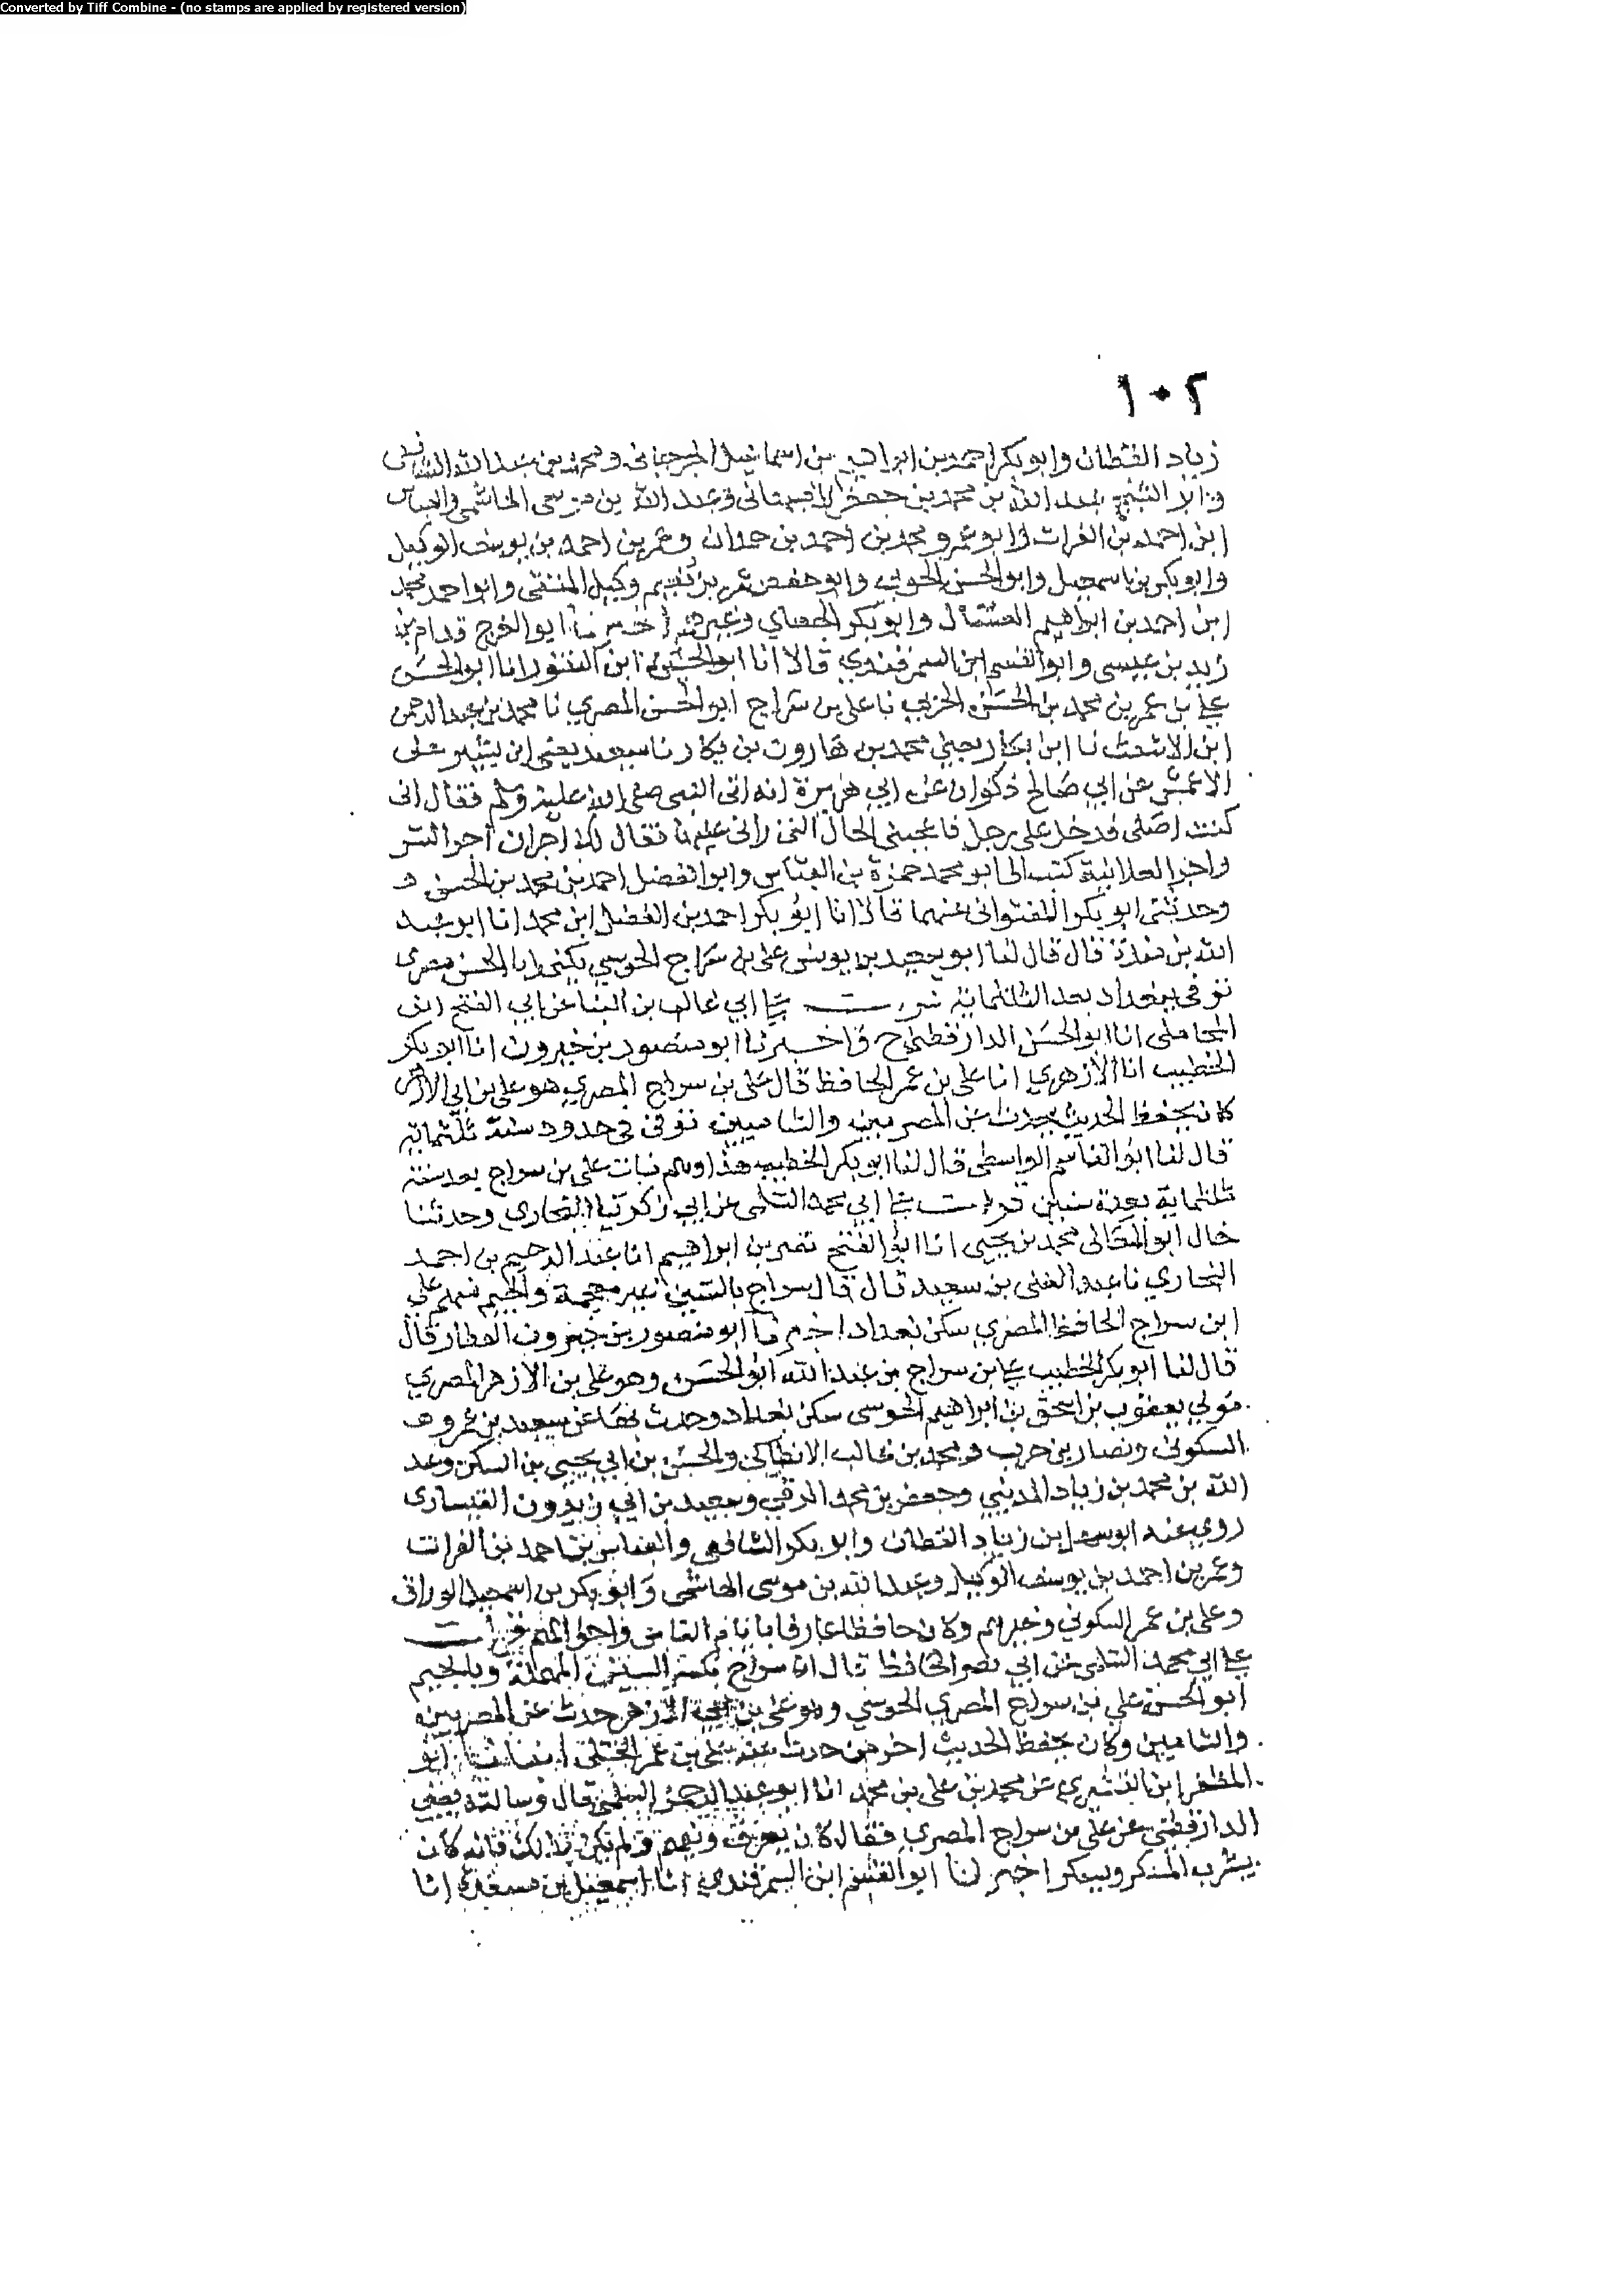 Converted by Tiff Combine - (no stamps are applied by registered version)
١٠٢
زياد القطان وابو بكر احمد بن ابراهيم بن اسماعيل الجرجاني ومحمد بن عبد الله الشافعي
عبد الله بن محمد بن جعفر الاصبهاني وعبد الله بن موسى الهاشمي والعباس
ابن احمد بن الفرات وابو عمرو محمد بن احمد بن حمدان وعمر بن احمد بن يوسف الوكيل
وابو بكر بن اسمعيل وابو الحسن الحربي وابو حفص عمر بن نعيم وكيل المتقي وابو احمد محمد
ابن احمد بن ابراهيم العسال وابو بكر الجعابي وغيرهم اخبرنا ابو الفرج قدام بن
زيد بن عيسى وابو القسم ابن السمرقندي قالا انا ابو الحسين ابن النقور انا ابو الحسن
علي بن عمر بن محمد بن الحسن الحربي نا علي بن سراج ابو الحسن المصري نا محمد بن عبد الرحمن
ابن الاشعث نا ابن بكار يعني محمد بن هارون بن بكار نا سعيد يعني ابن بشير عن
الاعمش عن ابي صالح ذكوان عن ابي هريرة انه اتى النبي صلى الله عليه وسلم فقال اني
كنت اصلي فدخل علي رجل فاعجبني الحال التي راني عليها فقال لك اجران اجر السر
واجر العلانية كتب الي ابو محمد حمزة بن العباس وابو الفضل احمد بن محمد بن الحسن
وحدثني ابو بكر اللفتواني عنهما قالا انا ابو بكر احمد بن الفضل ابن محمد انا ابو عبد
الله بن مندة قال قال لنا ابو سعيد بن يونس علي بن سراج الحرسي يكنى ابا الحسن مصري
توفي ببغداد بعد الثلاثمائة قرات على ابي غالب بن البنا عن ابي الفتح ابن
المحاملي انا ابو الحسن الدارقطني ح واخبرنا ابو منصور بن خيرون انا ابو بكر
الخطيب انا الازهري انا علي بن عمر الحافظ قال علي بن سراج المصري هو علي بن ابي الازهر
كان يحفظ الحديث يحدث عن المصريين والشاميين توفي في حدود سنة ثلثمائة
قال لنا ابو القاسم الواسطي قال لنا ابو بكر الخطيب هذا وهم مات علي بن سراج بعد سنة
ثلثمائة بعدة سنين قرات على ابي محمد السلمي عن ابي زكريا البخاري وحدثنا
خالي ابو المعالي محمد بن يحيى انا ابو الفتح نصر بن ابراهيم انا عبد الرحيم بن احمد
البخاري نا عبد الغني بن سعيد قال قال سراج بالسين غير معجمة والجيم فمنهم علي
ابن سراج الحافظ المصري سكن بغداد اخبرنا ابو منصور بن خيرون العطار قال
قال لنا ابو بكر الخطيب علي بن سراج بن عبد الله ابو الحسن وهو علي بن الازهر المصري
مولى يعقوب بن اسحق بن ابراهيم الحرسي سكن بغداد وحدث بها عن سعيد بن عمرو
السكوني ونصار بن حرب ومحمد بن غالب الانطاكي والحسن بن ابي يحيى بن السكن وعبد
الله بن محمد بن زياد المديني وجعفر بن محمد الرقي وسعيد بن ابي زيدون القيساري
روى عنه ابو سهل ابن زياد القطان وابو بكر الشافعي والعباس بن احمد بن الفرات
وعمر بن احمد بن يوسف الوكيل وعبد الله بن موسى الهاشمي وابو بكر بن اسمعيل الوراق
وعلي بن عمر السكوني وغيرهم وكان حافظا عارفا بايام الناس واحوالهم قرات
على ابي محمد السلمي عن ابي نصر الحافظ قال اما سراج بكسر السين المهملة وبالجيم
ابو الحسن علي بن سراج المصري الحرسي وهو علي بن ابي الازهر حدث عن المصريين
والشاميين وكان يحفظ الحديث اخر من حدث عنه علي بن عمر الختلي انبانا ابو
المظفر ابن القشيري عن محمد بن علي بن محمد انا ابو عبد الرحمن السلمي قال وسالته يعني
الدارقطني عن علي بن سراج المصري فقال كان يعرف ويفهم ولم يكن بذلك فانه كان
يشرب المسكر ويسكر اخبرنا ابو القسم ابن السمرقندي انا اسمعيل بن مسعدة انا